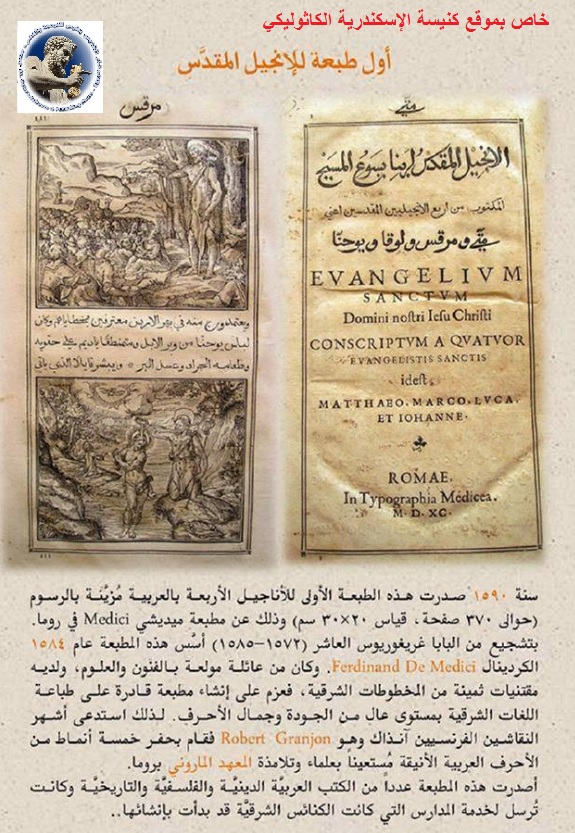 خاص بموقع كنيسة الإسكندرية الكاثوليكي
أول طبعة للإنجيل المقدَّس
متى
الانجيل المقدس لربنا يسوع المسيح
المكتوب من اربع الانجيليين المقدسين اعني
متى ومرقس ولوقا ويوحنا
EVANGELIVM
SANCTVM
Domini nostri Iesu Christi
CONSCRIPTVM A QVATVOR
EVANGELISTIS SANCTIS
idest,
MATTHAEO, MARCO, LVCA,
ET IOHANNE.
ROMAE,
In Typographia Medicea.
M. D. XC.
مرقس
ويعتمدون منه في نهر الاردن معترفين بخطاياهم وكان
لباس يوحنا من وبر الابل ومتمنطقا باديم على حقويه
وطعامه الجراد وعسل البر * ويبشر قايلا الذي ياتي
سنة ١٥٩٠ صدرت هذه الطبعة الأولى للأناجيل الأربعة بالعربية مُزيَّنة بالرسوم
(حوالى ٣٧٠ صفحة، قياس ٢٠×٣٠ سم) وذلك عن مطبعة ميديشي Medici في روما.
بتشجيع من البابا غريغوريوس العاشر (١٥٧٢–١٥٨٥) أسَّس هذه المطبعة عام ١٥٨٤
الكردينال Ferdinand De Medici. وكان من عائلة مولعة بالفنون والعلوم، ولديه
مقتنيات ثمينة من المخطوطات الشرقية، فعزم على إنشاء مطبعة قادرة على طباعة
اللغات الشرقية بمستوى عال من الجودة وجمال الأحرف. لذلك استدعى أشهر
النقاشين الفرنسيين آنذاك وهو Robert Granjon فقام بحفر خمسة أنماط من
الأحرف العربية الأنيقة مُستعينا بعلماء وتلامذة المعهد الماروني بروما.
أصدرت هذه المطبعة عدداً من الكتب العربيَّة الدينيَّة والفلسفيَّة والتاريخيَّة وكانت
تُرسل لخدمة المدارس التي كانت الكنائس الشرقيَّة قد بدأت بإنشائها..